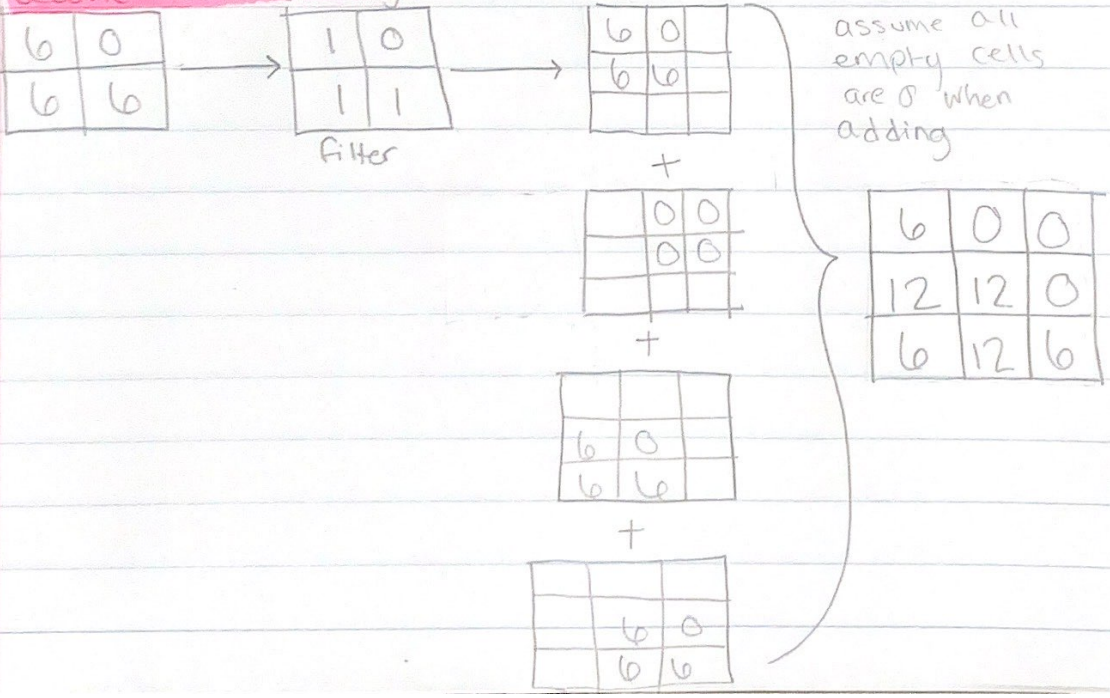 6 0
6 6
1 0
1 1
filter
6 0
6 6
+
0 0
0 0
+
6 0
6 6
+
6 0
6 6
assume all
empty cells
are 0 when
adding
6 0 0
12 12 0
6 12 6